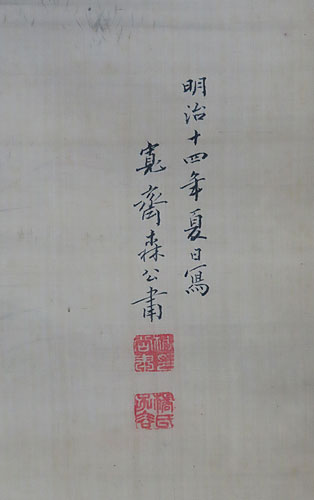 明治十四年夏日寫
寛齋森公肅